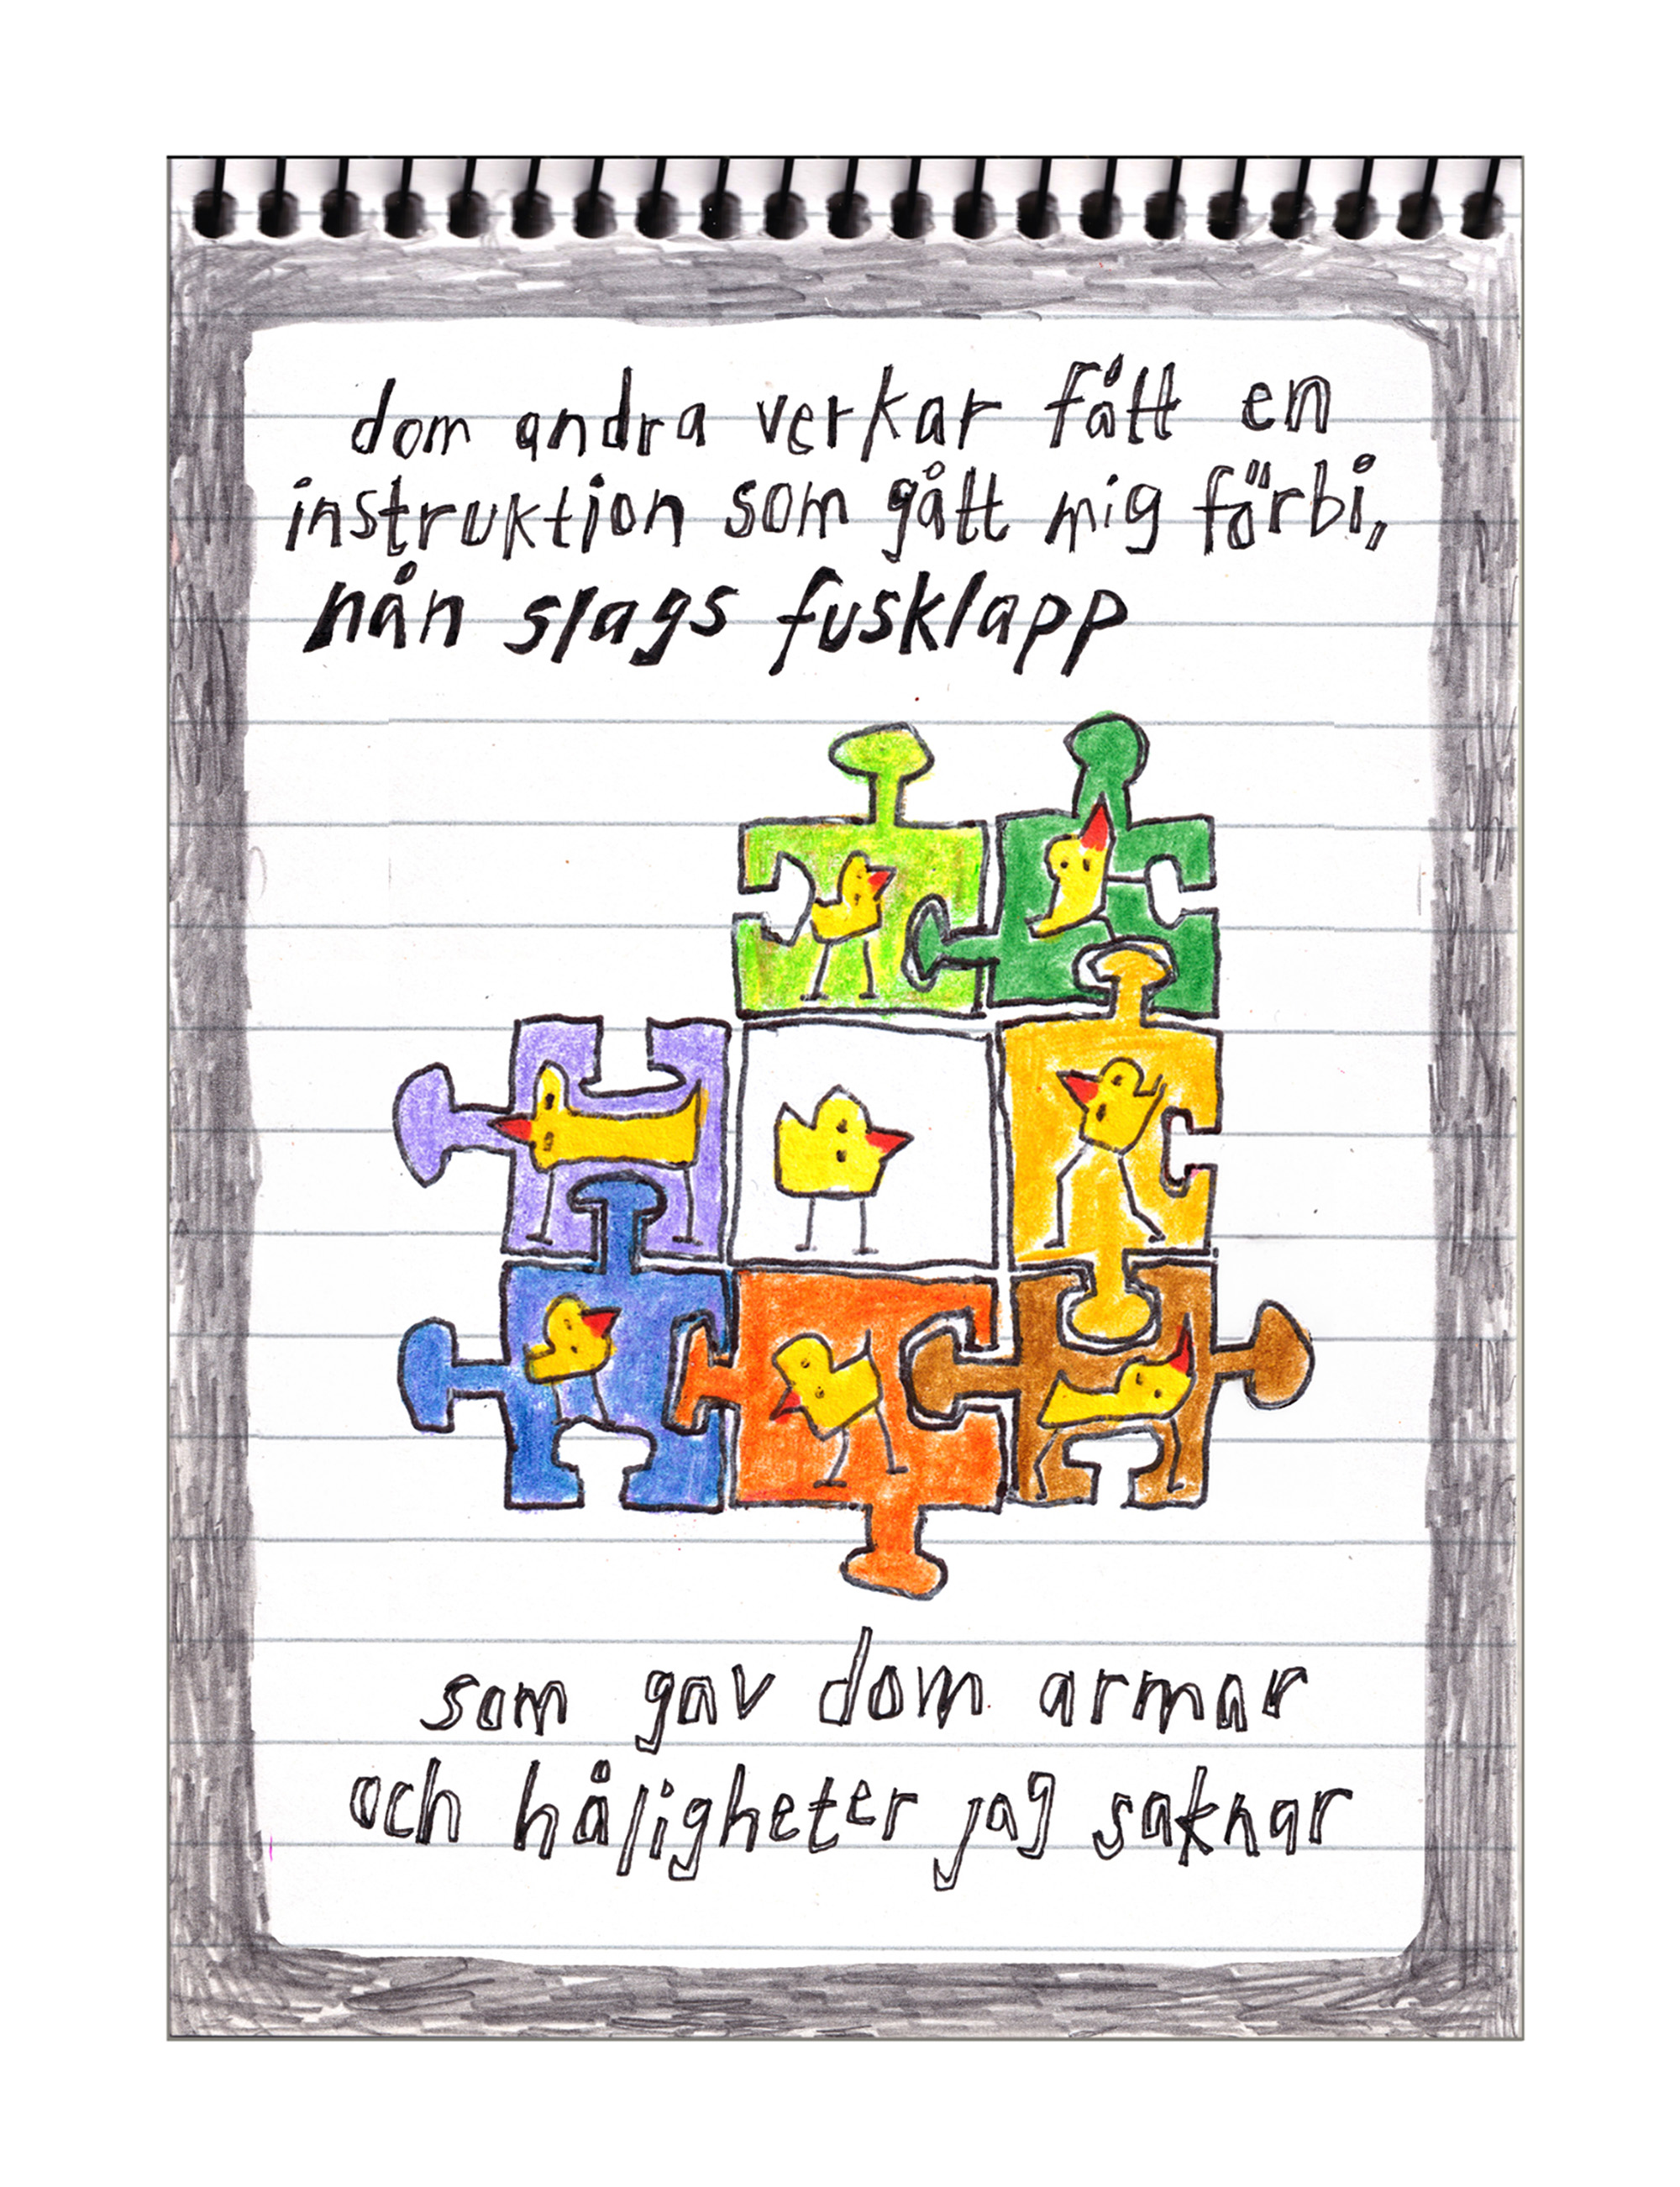 dom andra verkar fått en
instruktion som gått mig förbi,
nån slags fusklapp
som gav dom armar
och håligheter jag saknar